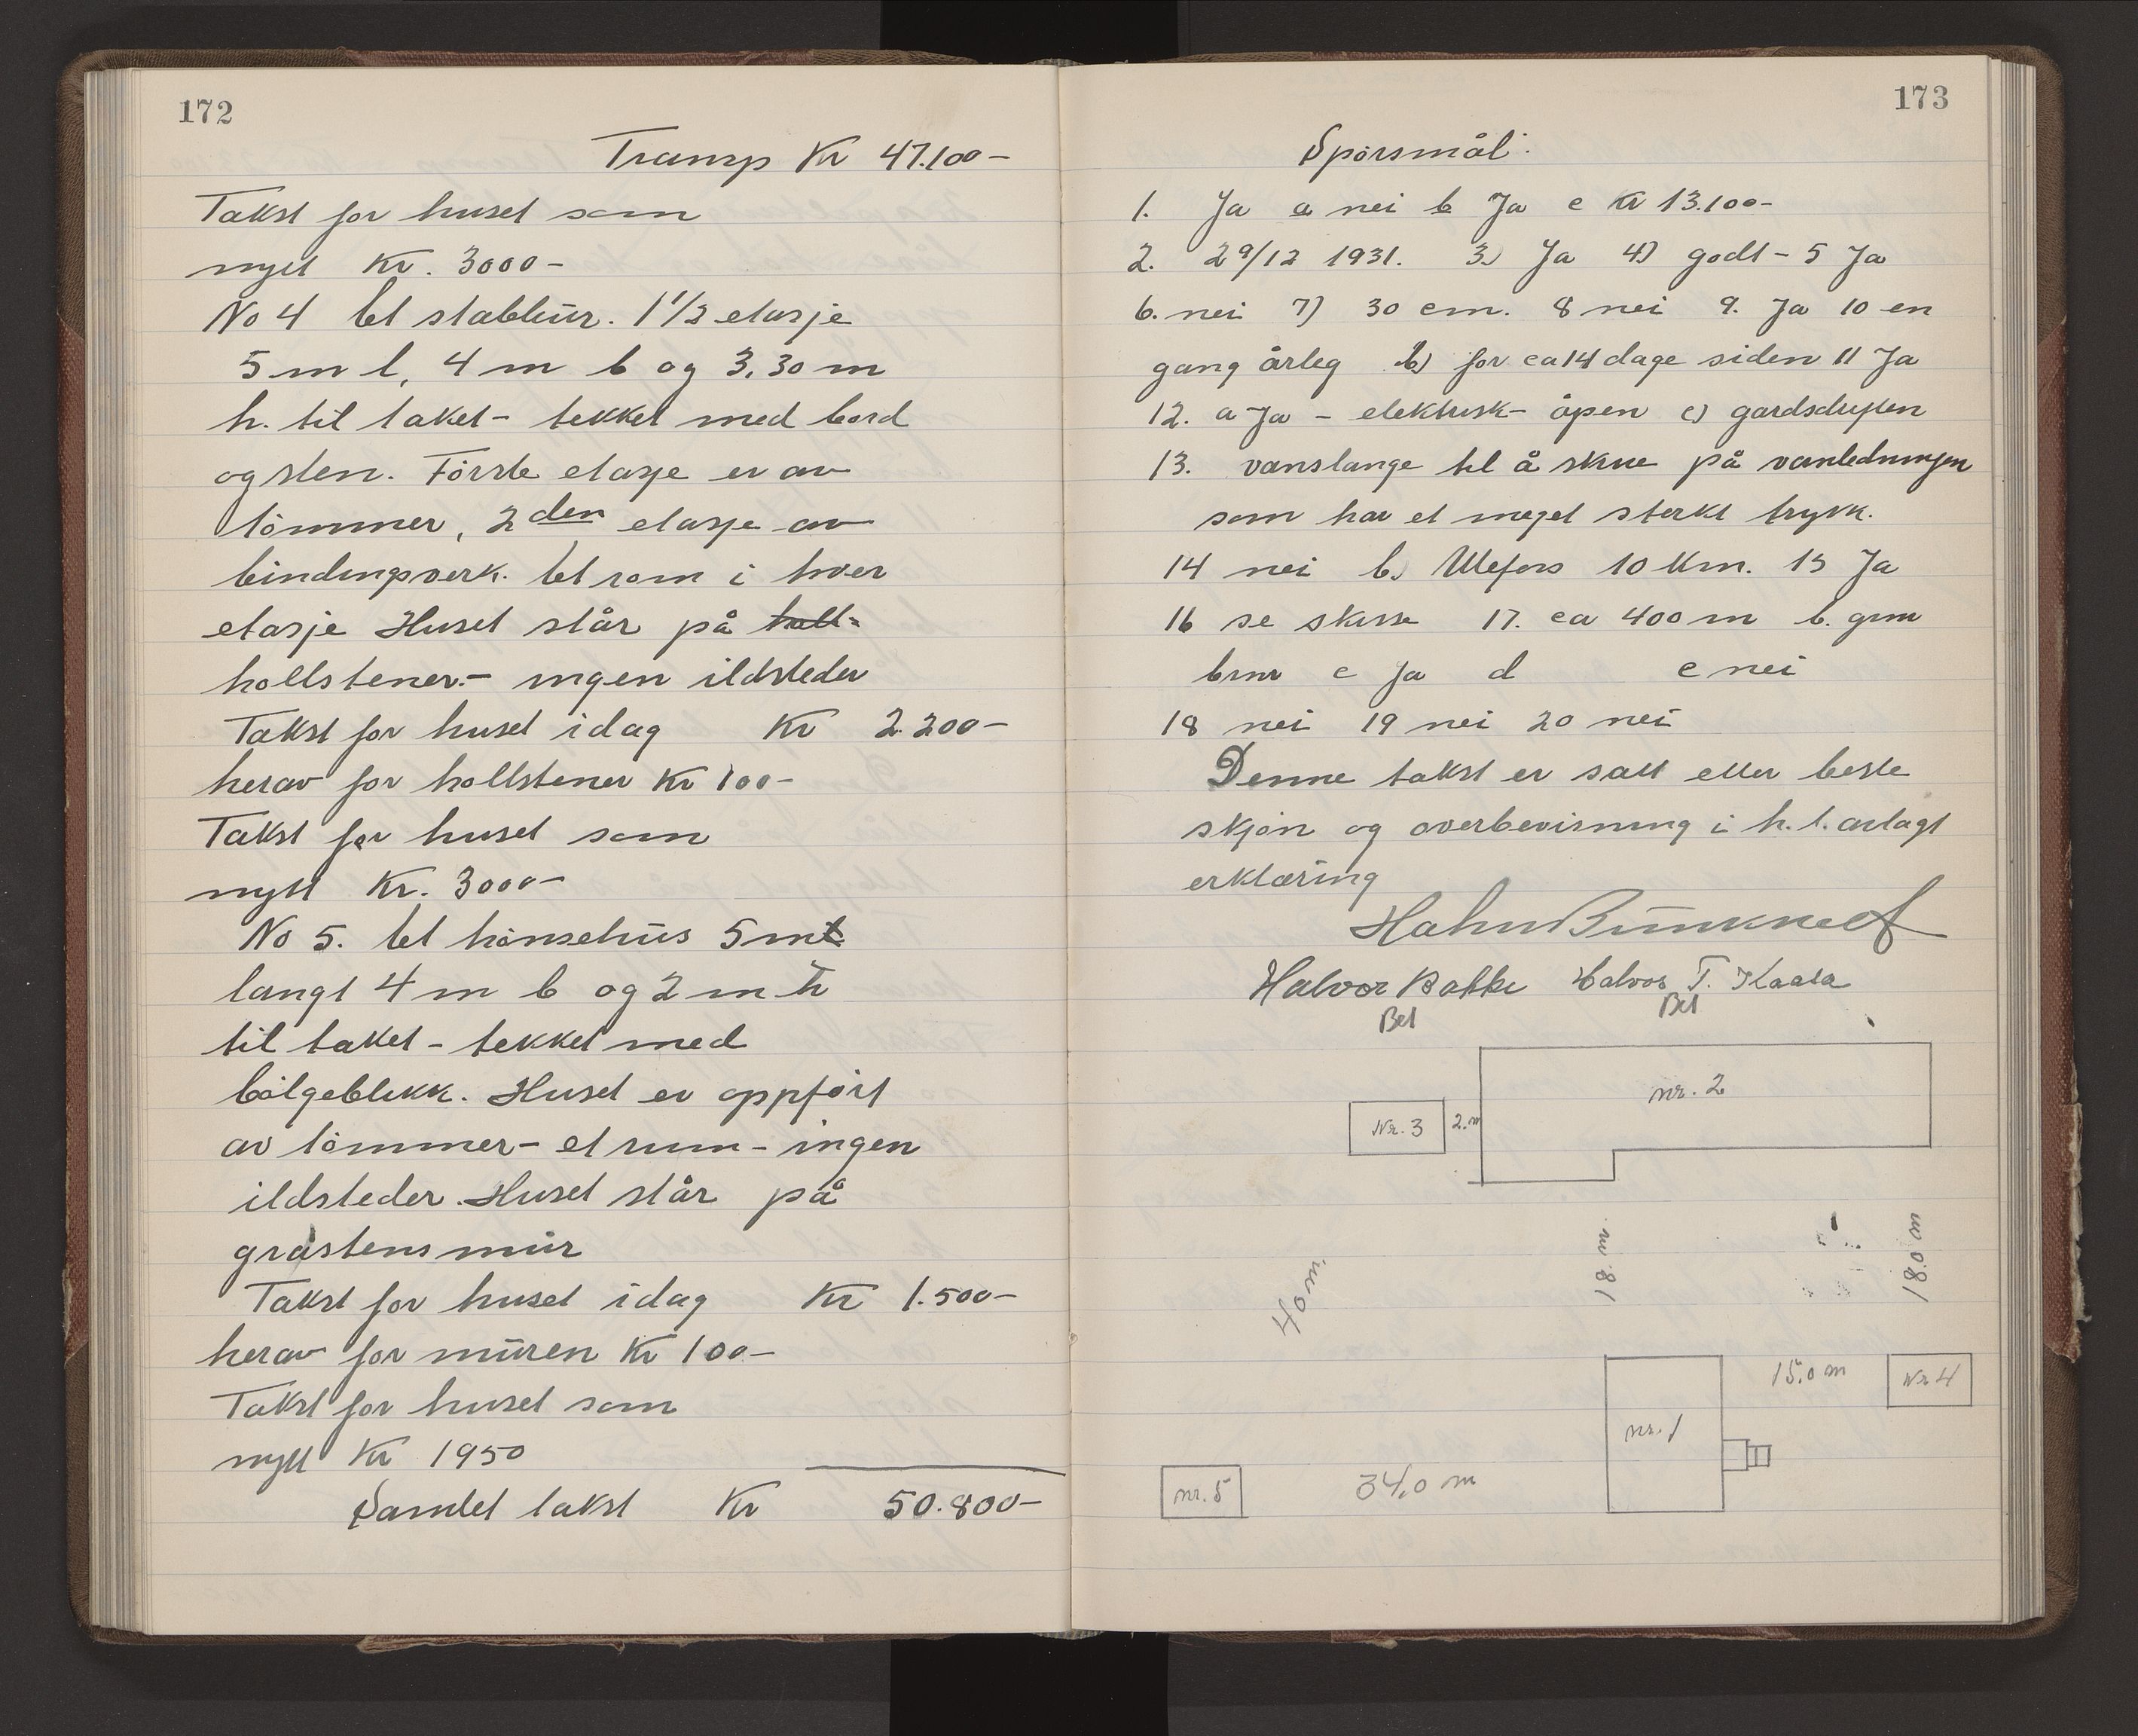 172
Transp Kr 47.100-
Takst for huset som
nytt Kr. 3000-
No 4 Et stabbur. 1 1/2 etasje
5 m l, 4 m b og 3,30 m
h. til taket - tekket med bord
og sten. Första etasje er av
tömmer, 2den etasje av
bindingsverk. Et rom i hver
etasje Huset står på holl-
hollstener.- ingen ildsteder
Takst for huset idag Kr 2.200-
herav for hollstener Kr 100-
Takst for huset som
nytt Kr. 3000-
No 5. Et hönsehus 5 mt
langt 4 m b og 2 m h
til taket - tekket med
bölgeblikk. Huset er oppfört
av tömmer - et rum - ingen
ildsteder. Huset står på
gråstensmur
Takst for huset idag Kr 1.500-
herav for muren Kr 100-
Takst for huset som
nytt Kr 1950
Samlet takst Kr 50.800-
173
Spörsmål:
1. Ja a nei b Ja c Kr 13.100-
2. 29/12 1931. 3) Ja 4) godt - 5 Ja
6. nei 7) 30 cm. 8 nei 9. Ja 10 en
gang årleg b) for ca 14 dage siden 11 Ja
12. a Ja - elektrisk - åpen c) gardsdriften
13. vanslange til å skrue på vanledningen
som har et meget sterkt trykk.
14 nei b) Ulefoss 10 Km. 15 Ja
16 se skisse 17. ca 400 m b. grm
brnr c Ja d e nei
18 nei 19 nei 20 nei
Denne takst er satt etter beste
skjön og overbevisning i h. t. avlagt
erklæring
Halvor Bakke Halvor T. Kaasa
Bet Bet
nr. 2
Nr. 3 2. m
40 m
18 m
18.0 m
15.0 m Nr 4
nr. 1
nr. 5 34,0 m